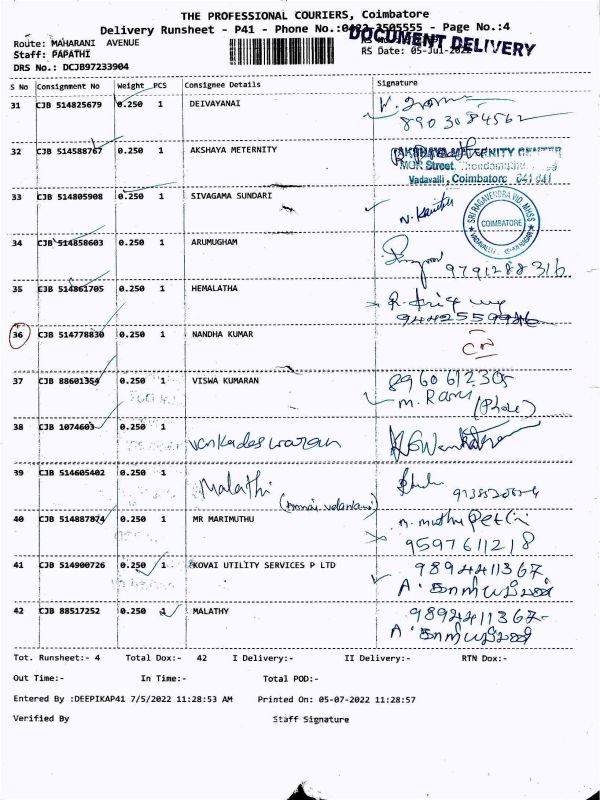 THE PROFESSIONAL COURIERS, Coimbatore
Delivery Runsheet - P41 - Phone No.:0422 3505555 - Page No.:4
Route: MAHARANI AVENUE
DOCUMENT DELIVERY
Staff: PAPATHI
RS Date: 05-Jul-2022
DRS No.: DCJB97233904
S No Consignment No Weight PCS Consignee Details Signature
31 CJB 514825679 0.250 1 DEIVAYANAI
8903084562
32 CJB 514588767 0.250 1 AKSHAYA METERNITY
AKSHAYA MATERNITY CENTER
MGR Street,
Vadavalli, Coimbatore 641 041
33 CJB 514805908 0.250 1 SIVAGAMA SUNDARI
SRI RAGAVENDRA VID. MHSS
COIMBATORE
34 CJB 514858603 0.250 1 ARUMUGHAM
9791288316
35 CJB 514861705 0.250 1 HEMALATHA
9442559946
36 CJB 514778830 0.250 1 NANDHA KUMAR
37 CJB 88601354 0.250 1 VISWA KUMARAN 8960612305
M. Ramu
(Phone)
38 CJB 1074603 0.250 1 Venkadeswaran
39 CJB 514605402 0.250 1 Malathi
40 CJB 514887874 0.250 1 MR MARIMUTHU
9597611218
41 CJB 514900726 0.250 1 KOVAI UTILITY SERVICES P LTD 9894411367
42 CJB 88517252 0.250 1 MALATHY 9894411367
Tot. Runsheet:- 4 Total Dox:- 42 I Delivery:- II Delivery:- RTN Dox:-
Out Time:- In Time:- Total POD:-
Entered By :DEEPIKAP41 7/5/2022 11:28:53 AM Printed On: 05-07-2022 11:28:57
Verified By Staff Signature